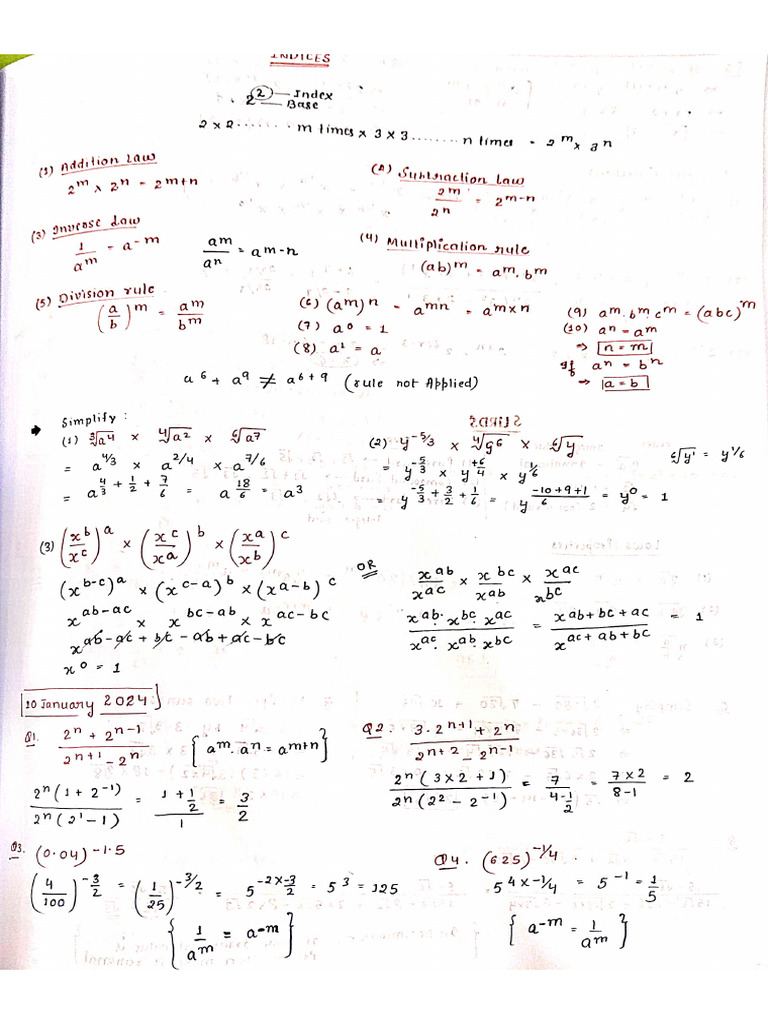 INDICES
2² — Index
— Base
2 × 2 ........ m times × 3 × 3 ........ n times = 2^m × 3^n
(1) Addition Law
2^m × 2^n = 2^(m+n)
(2) Subtraction Law
2^m / 2^n = 2^(m-n)
(3) Inverse Law
1 / a^m = a^-m
a^m / a^n = a^(m-n)
(4) Multiplication rule
(ab)^m = a^m · b^m
(5) Division rule
(a/b)^m = a^m / b^m
(6) (a^m)^n = a^mn = a^(m×n)
(7) a^0 = 1
(8) a^1 = a
(9) a^m · b^m · c^m = (abc)^m
(10) a^n = a^m
⇒ n = m
If a^n = b^n
⇒ a = b
a^6 + a^9 ≠ a^(6+9) (rule not Applied)
Simplify :
(1) ∛a^4 × ∜a^2 × ⁶√a^7
= a^(4/3) × a^(2/4) × a^(7/6)
= a^(4/3 + 1/2 + 7/6) = a^(18/6) = a^3
(2) y^(-5/3) × ∜y^6 × ⁶√y
= y^(-5/3) × y^(+6/4) × y^(1/6)
= y^(-5/3 + 3/2 + 1/6) = y^((-10+9+1)/6) = y^0 = 1
⁶√y^1 = y^(1/6)
(3) (x^b / x^c)^a × (x^c / x^a)^b × (x^a / x^b)^c
(x^(b-c))^a × (x^(c-a))^b × (x^(a-b))^c
x^(ab-ac) × x^(bc-ab) × x^(ac-bc)
x^(ab-ac+bc-ab+ac-bc)
x^0 = 1
OR
x^ab / x^ac × x^bc / x^ab × x^ac / x^bc
x^ab · x^bc · x^ac / x^ac · x^ab · x^bc = x^(ab+bc+ac) / x^(ac+ab+bc) = 1
10 January 2024
Q1. (2^n + 2^(n-1)) / (2^(n+1) - 2^n) { a^m · a^n = a^(m+n) }
2^n (1 + 2^-1) / 2^n (2^1 - 1) = (1 + 1/2) / 1 = 3/2
Q2. (3 · 2^(n+1) + 2^n) / (2^(n+2) - 2^(n-1))
2^n (3 × 2 + 1) / 2^n (2^2 - 2^-1) = 7 / (4 - 1/2) = (7 × 2) / (8 - 1) = 2
Q3. (0.04)^-1.5
(4/100)^(-3/2) = (1/25)^(-3/2) = 5^(-2 × -3/2) = 5^3 = 125
{ 1 / a^m = a^-m }
Q4. (625)^(-1/4)
5^(4 × -1/4) = 5^-1 = 1/5
{ a^-m = 1 / a^m }